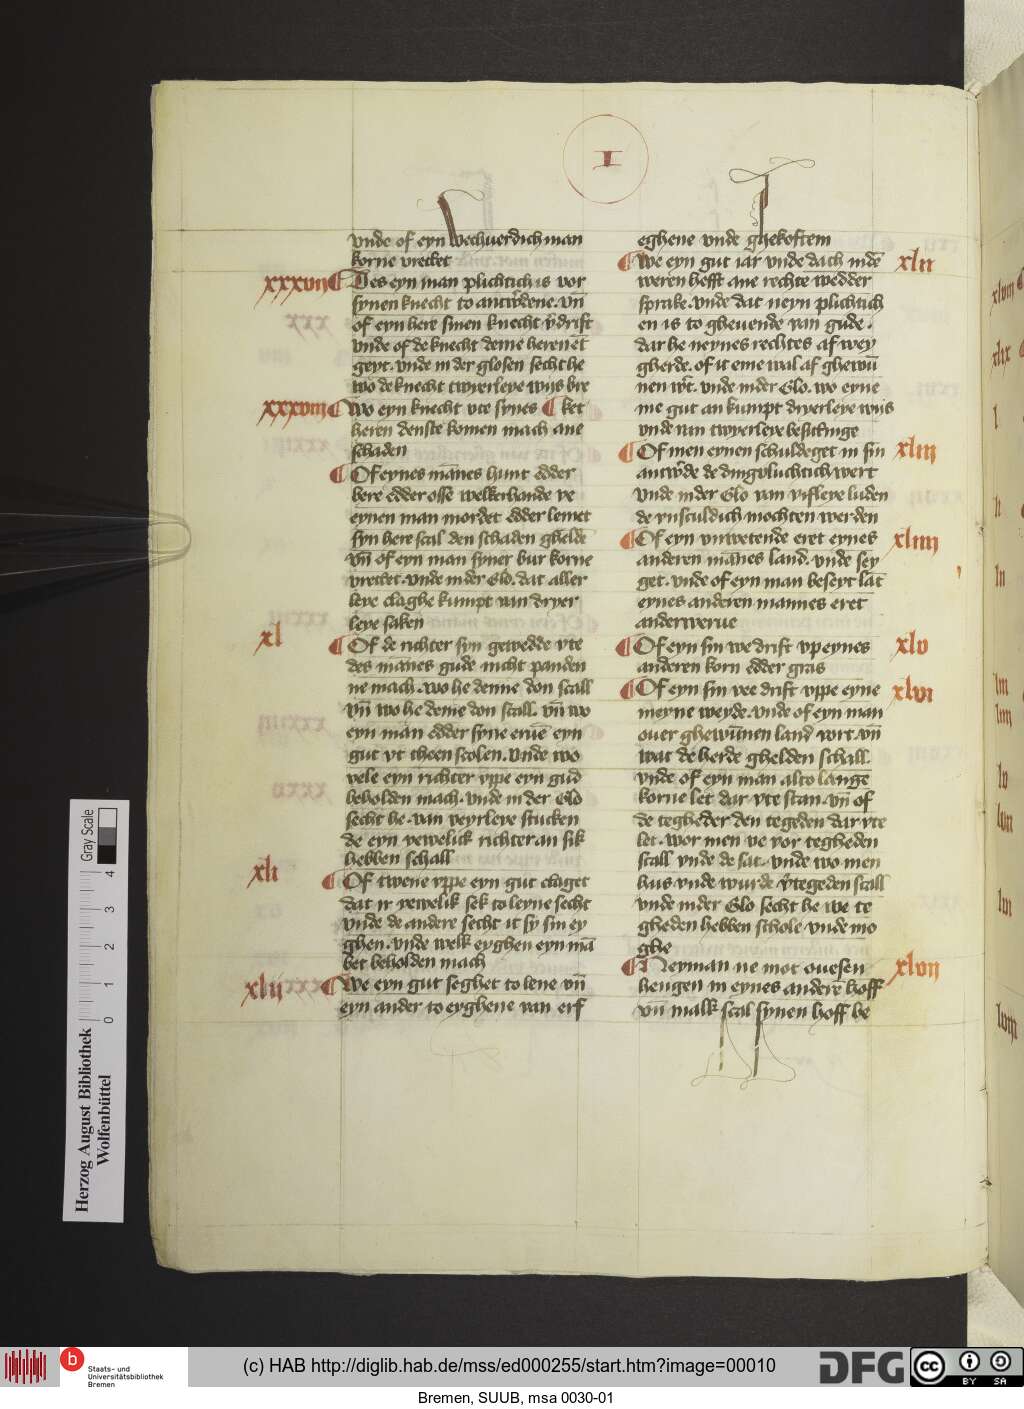 I
vnde of eyn wechuerdich man
korne vretket
xxxvii Des eyn man plichtich is vor
synen knecht to antw̄dene. vn̄
of eyn here sinen knecht v̄drift
vnde of de knecht deme heren et̄
geyt. vnde in der glosen secht he
wo de knecht twyerleye wys bre
xxxviii Wo eyn knecht vte synes ¶ ket
heren denste komen mach ane
schaden
¶ Of eynes mānes hunt edder
bere edder osse welkerhande ve
eynen man mordet edder lemet
syn here scal den schaden ghelde
vn̄ of eyn man syner bur korne
vretket. vnde in der Glo. dat aller
leye claghe kumpt van dryer
leye saken
xl ¶ Of de richter syn gewedde vte
des mānes gude nicht panden
ne mach. wo he denne don scall
vn̄ wo he denne don scall. vn̄ wo
eyn man edder syne eruē eyn
gut vt theen scolen. vnde wo
vele eyn richter vppe eyn gud
beholden mach. vnde in der Glo
secht he. van veyrleye stucken
de eyn yewelick richter an sik
hebben schall
xli ¶ Of twene vppe eyn gut claget
dat ir yewelik sek to leyne secht
vnde de andere secht it sy sin ey
ghen. vnde welk eyghen eyn mā
bet beholden mach
xlii ¶ We eyn gut seghet to lene vn̄
eyn ander to eyghene van erf
eghene vnde ghekoftem
¶ We eyn gut iar vnde dach in dē xlii
weren hefft ane rechte wedder
sprake. vnde dat neyn plichtich
en is to gheuende van gude.
dar he neynes rechtes af wey
gherde. of it eme wal af ghewū
nen wt̄. vnde in der Glo. wo eyne
me gut an kumpt dryerleye wiis
vnde van twyerleye besittinge
¶ Of men eynen schuldeget in sin xliii
antw̄de de dingvluchtich wert
vnde in der Glo van vifleye luden
de vnsculdich mochten werden
¶ Of eyn vnwetende eret eynes xliiii
anderen mānes land. vnde sey
get. vnde of eyn man beseyt lāt
eynes anderen mannes eret
anderwerue
¶ Of eyn sin we drift vp eynes xlv
anderen korn edder gras
¶ Of eyn sin vee drift vppe eyne xlvi
meyne weyde. vnde of eyn man
ouer ghewūnen land wrt. vn̄
wat de herde ghelden schall.
vnde of eyn man al to lange
korne let dar vte stan. vn̄ of
de tegheder den tegeden dar vte
let. wor men ve vor tegheden
scall vnde de sat. vnde wo men
hus vnde wurde v̄tegeden scall
vnde in der Glo secht he we te
gheden hebben schole. vnde mo
ghe
¶ Neyman ne mot ouesen xlvii
hengen in eynes andere hoff
vn̄ malk scal synen hoff be
Herzog August Bibliothek
Wolfenbüttel
0 1 2 3 4
Gray Scale
b
Staats- und
Universitätsbibliothek
Bremen
(c) HAB http://diglib.hab.de/mss/ed000255/start.htm?image=00010
DFG
cc BY SA
Bremen, SUUB, msa 0030-01